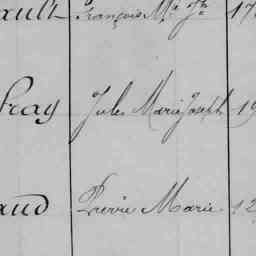 ault François Mie Jh 17
fray Jules Marie Joseph 19
aud Pierre Marie 12